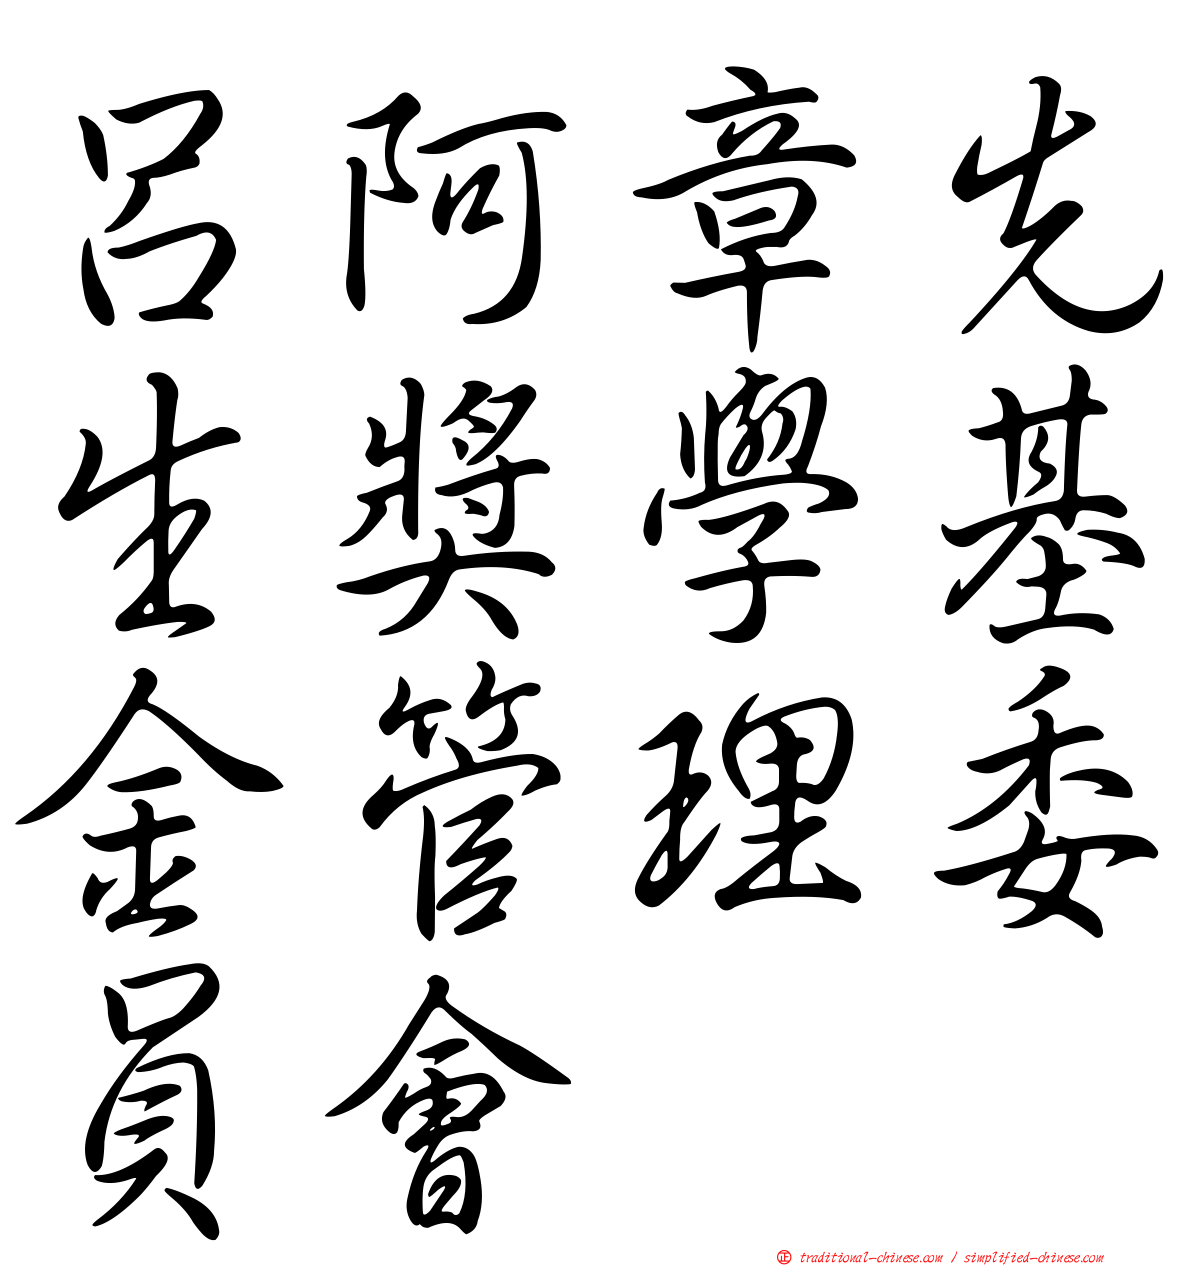 呂阿章先
生獎學基
金管理委
員會
正 traditional-chinese.com / simplified-chinese.com